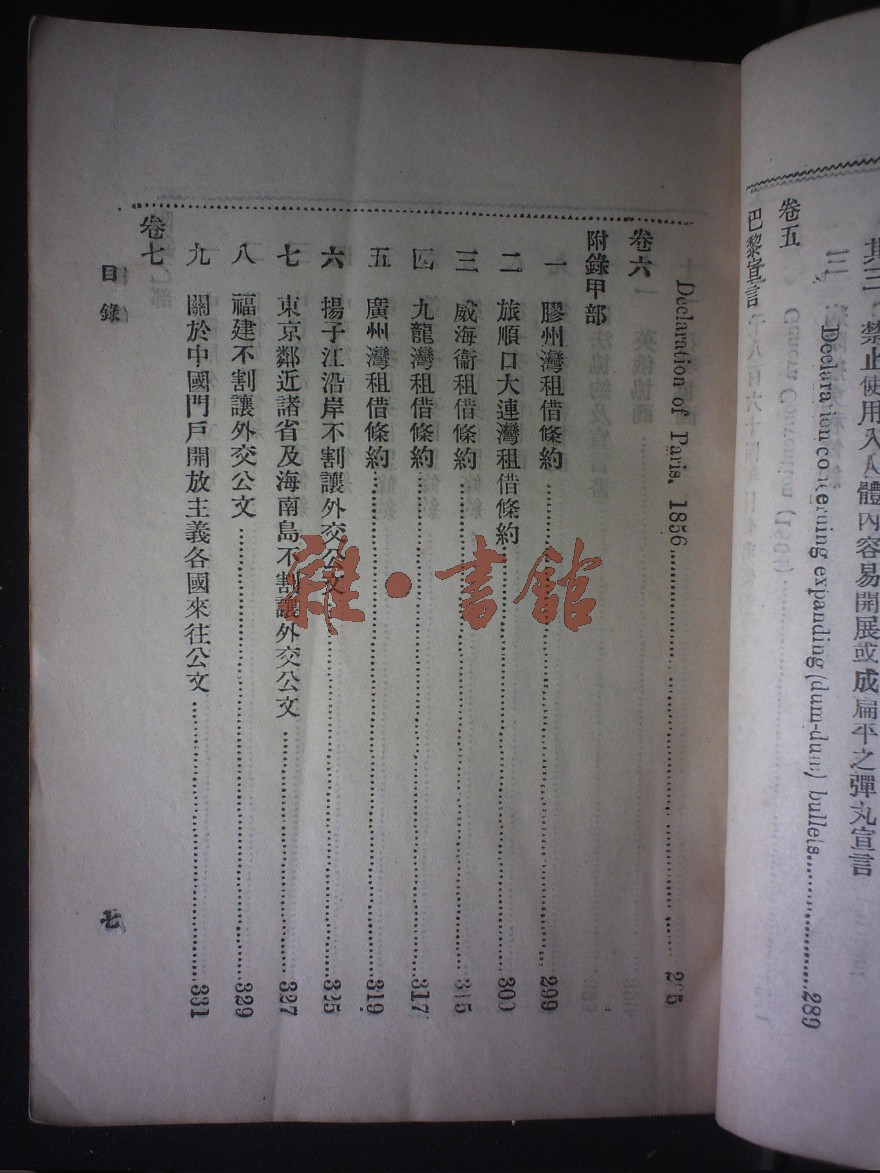 其三 禁止使用入人體內容易開展或成扁平之彈丸宣言
Declaration concerning expanding (dum-dum) bullets 289
卷五
巴黎宣言
Declaration of Paris, 1856
卷六
附錄甲部
一 膠州灣租借條約 299
二 旅順口大連灣租借條約 309
三 威海衞租借條約 315
四 九龍灣租借條約 317
五 廣州灣租借條約 319
六 揚子江沿岸不割讓外交公文 325
七 東京鄰近諸省及海南島不割讓外交公文 327
八 福建不割讓外交公文 329
九 關於中國門戶開放主義各國來往公文 331
卷七
目錄
七
雜·書館